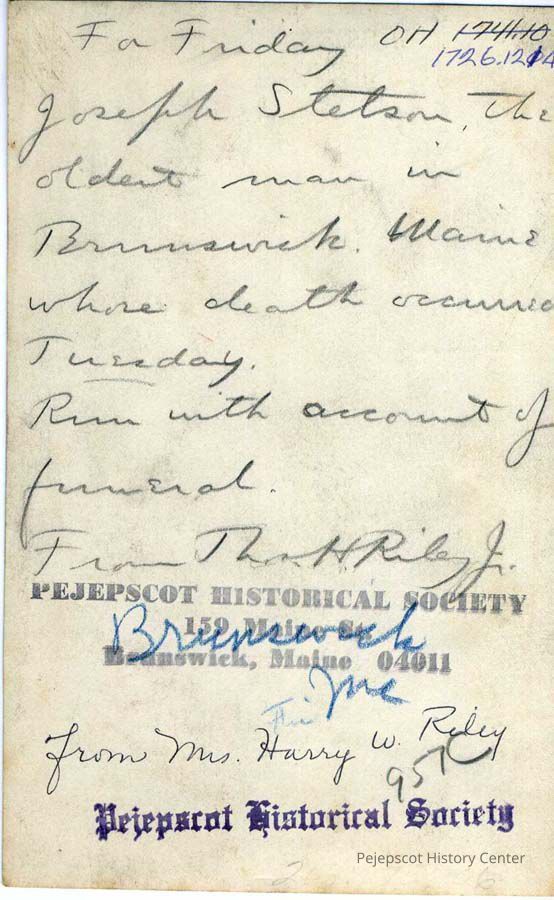 For Friday OH 1741.10
1726.12
Joseph Stetson, the
oldest man in
Brunswick. Maine
whose death occurred
Tuesday.
Run with account of
funeral.
From Thos. H Riley Jr.
PEJEPSCOT HISTORICAL SOCIETY
159 Maine St.
Brunswick
Brunswick, Maine 04011
Me
Fri
from Mrs. Harry W. Riley
Pejepscot Historical Society
Pejepscot History Center